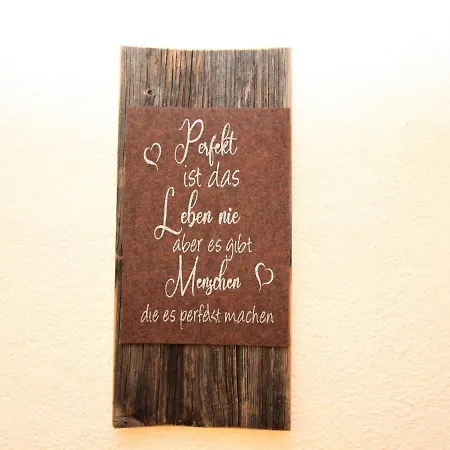 Perfekt
ist das
Leben nie
aber es gibt
Menschen
die es perfekt machen